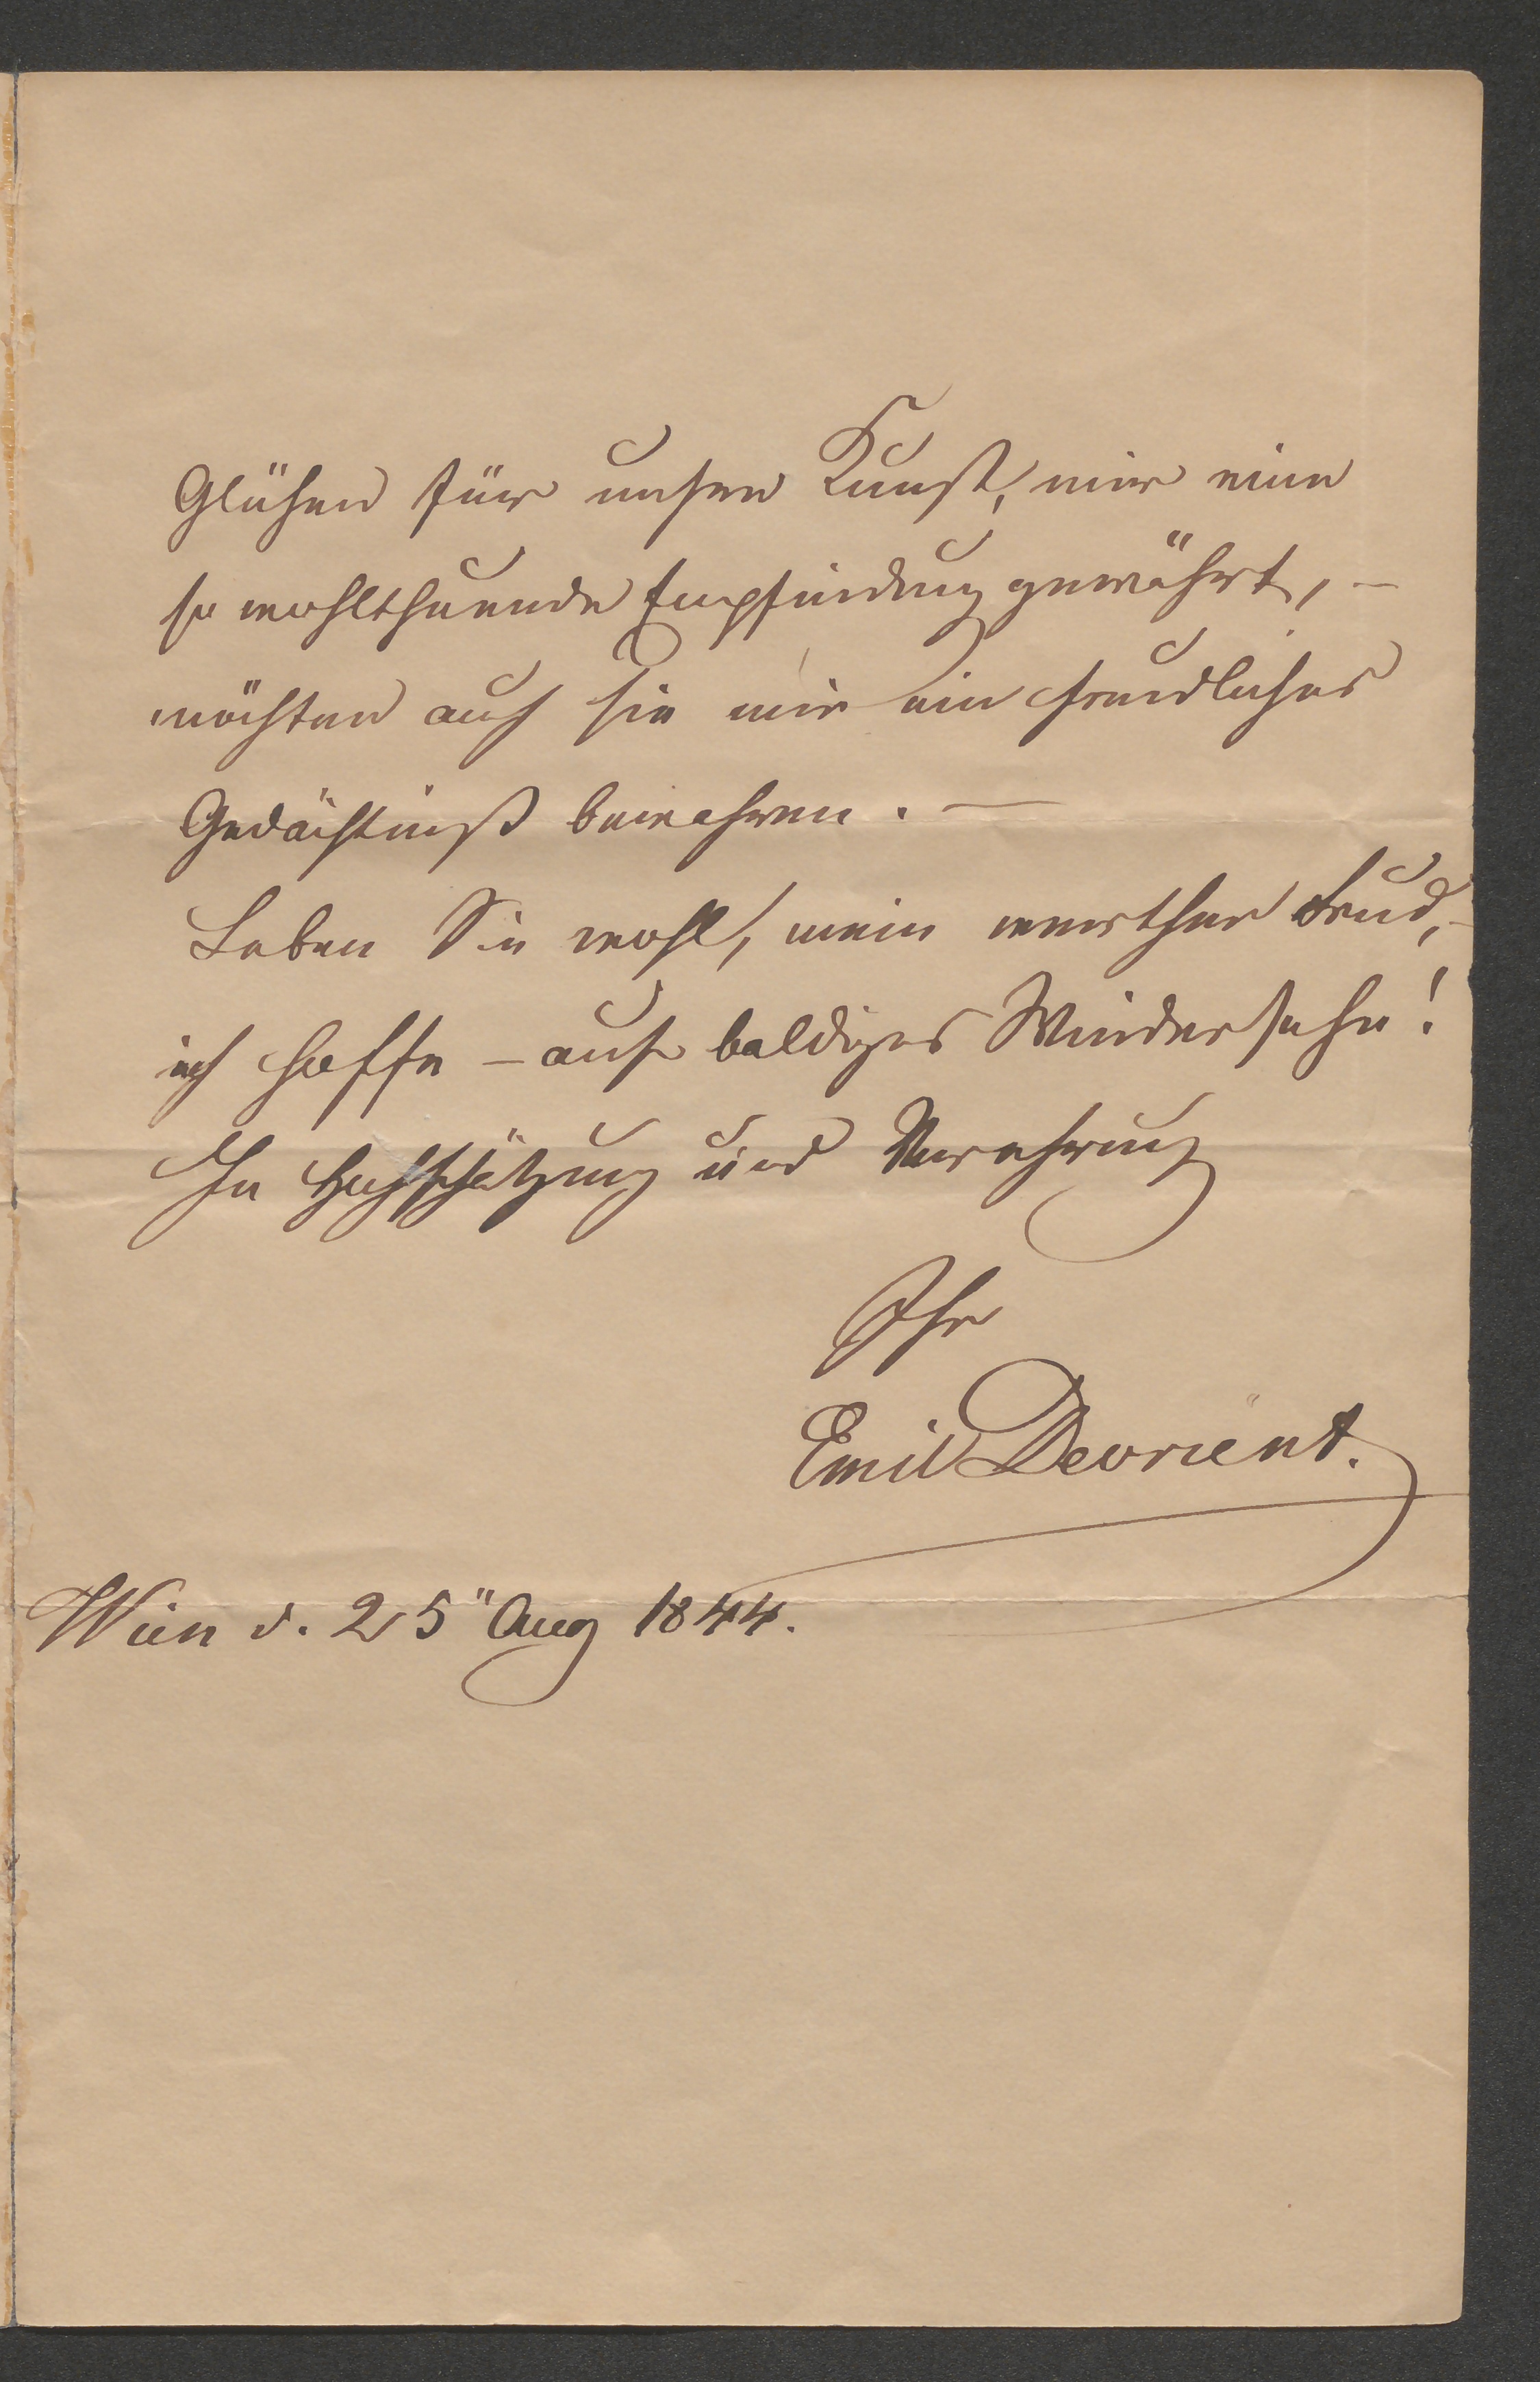 Glühen für unsere Kunst, mir eine
so wohlthuende Empfindung gewährt, –
möchten auch Sie mir ein freundliches
Gedächtniß bewahren. –
Leben Sie wohl, mein werther Freund, –
ich hoffe – auf baldiges Wiedersehn!
In Hochschätzung und Verehrung
Ihr
Emil Devrient.
Wien d. 25" Aug 1844.